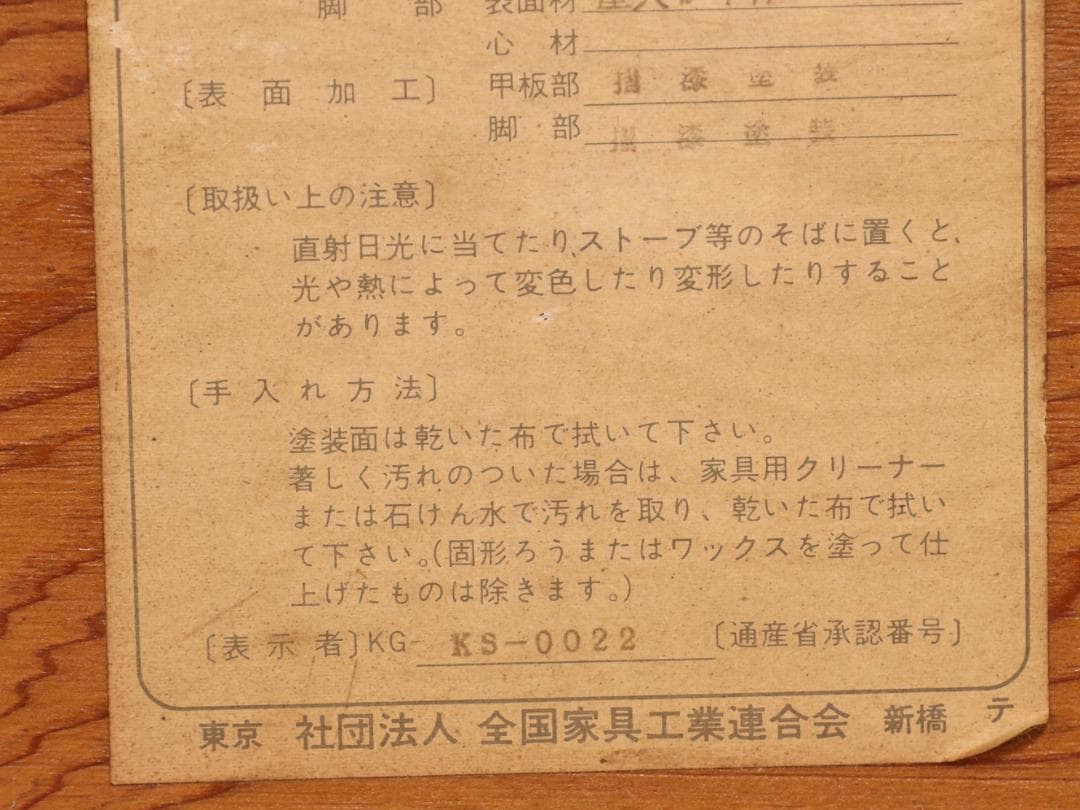 脚部 表面材
心材
〔表面加工〕 甲板部 摺漆塗装
脚部 摺漆塗装
〔取扱い上の注意〕
直射日光に当てたり、ストーブ等のそばに置くと、
光や熱によって変色したり変形したりすること
があります。
〔手入れ方法〕
塗装面は乾いた布で拭いて下さい。
著しく汚れのついた場合は、家具用クリーナー
または石けん水で汚れを取り、乾いた布で拭い
て下さい。(固形ろうまたはワックスを塗って仕
上げたものは除きます。)
〔表示者〕KG- KS-0022 〔通産省承認番号〕
東京 社団法人 全国家具工業連合会 新橋 テ